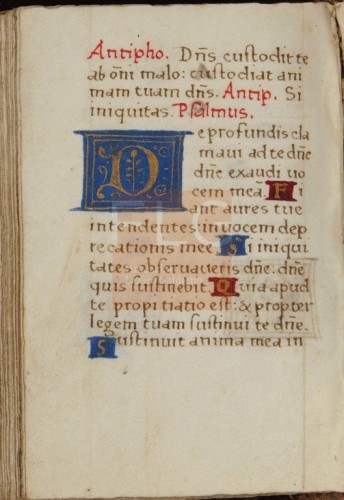 Antipho. Dñs custodit te
ab oñi malo: custodiat ani
mam tuam dñs. Antip. Si
iniquitas. Psalmus.
De profundis cla
maui ad te dñe
dñe exaudi uo
cem meā. Fi
ant aures tue
intendentes: in uocem dep
recationis mee. Si iniqui
tates obseruaueris dñe: dñe
quis sustinebit. Quia apud
te propitiatio est: & propter
legem tuam sustinui te dñe.
Sustinuit anima mea in